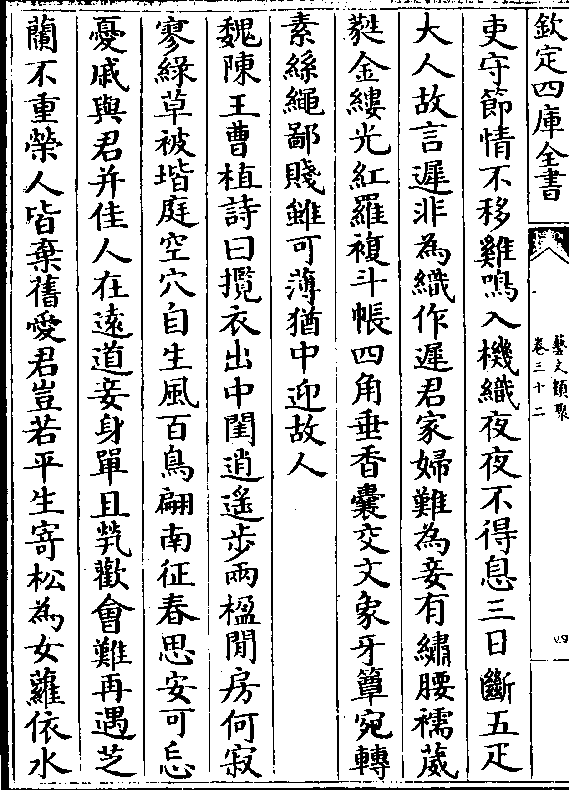 欽定四庫全書
藝文類聚
卷三十二
四
吏守節情不移雞鳴入機織夜夜不得息三日斷五疋
大人故言遲非為織作遲君家婦難為妾有繡腰襦葳
蕤金縷光紅羅複斗帳四角垂香囊交文象牙簟宛轉
素絲繩鄙賤雖可薄猶中迎故人
魏陳王曹植詩曰攬衣出中閨逍遙步兩楹閒房何寂
寥綠草被堦庭空穴自生風百鳥翩南征春思安可忘
憂戚與君并佳人在遠道妾身單且煢歡會難再遇芝
蘭不重榮人皆棄舊愛君豈若平生寄松為女蘿依水